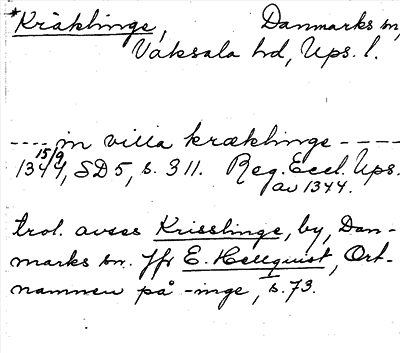 *Kräklinge, Danmarks sn,
Vaksala hd, Ups. l.
---- in villa kræklinge ----
15/9
1344, SD 5, s. 311. Reg. Eccl. Ups.
av 1344.
trol. avses Krisslinge, by, Dan-
marks sn. Jfr E. Hellquist, Ort-
namnen på -inge, s. 73.